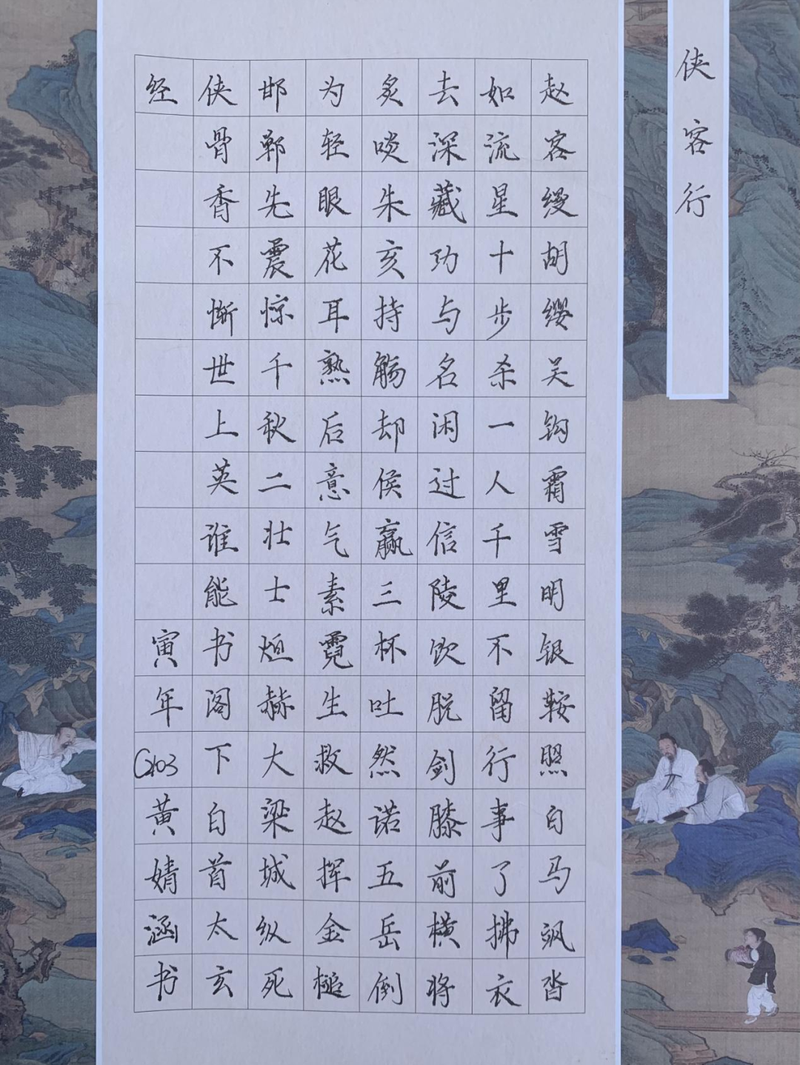 侠客行
赵客缦胡缨吴钩霜雪明银鞍照白马飒沓
如流星十步杀一人千里不留行事了拂衣
去深藏功与名闲过信陵饮脱剑膝前横将
炙啖朱亥持觞却侯赢三杯吐然诺五岳倒
为轻眼花耳熟后意气素霓生救赵挥金槌
邯郸先震惊千秋二壮士烜赫大梁城纵死
侠骨香不惭世上英谁能书阁下白首太玄
经 寅年G103黄婧涵书